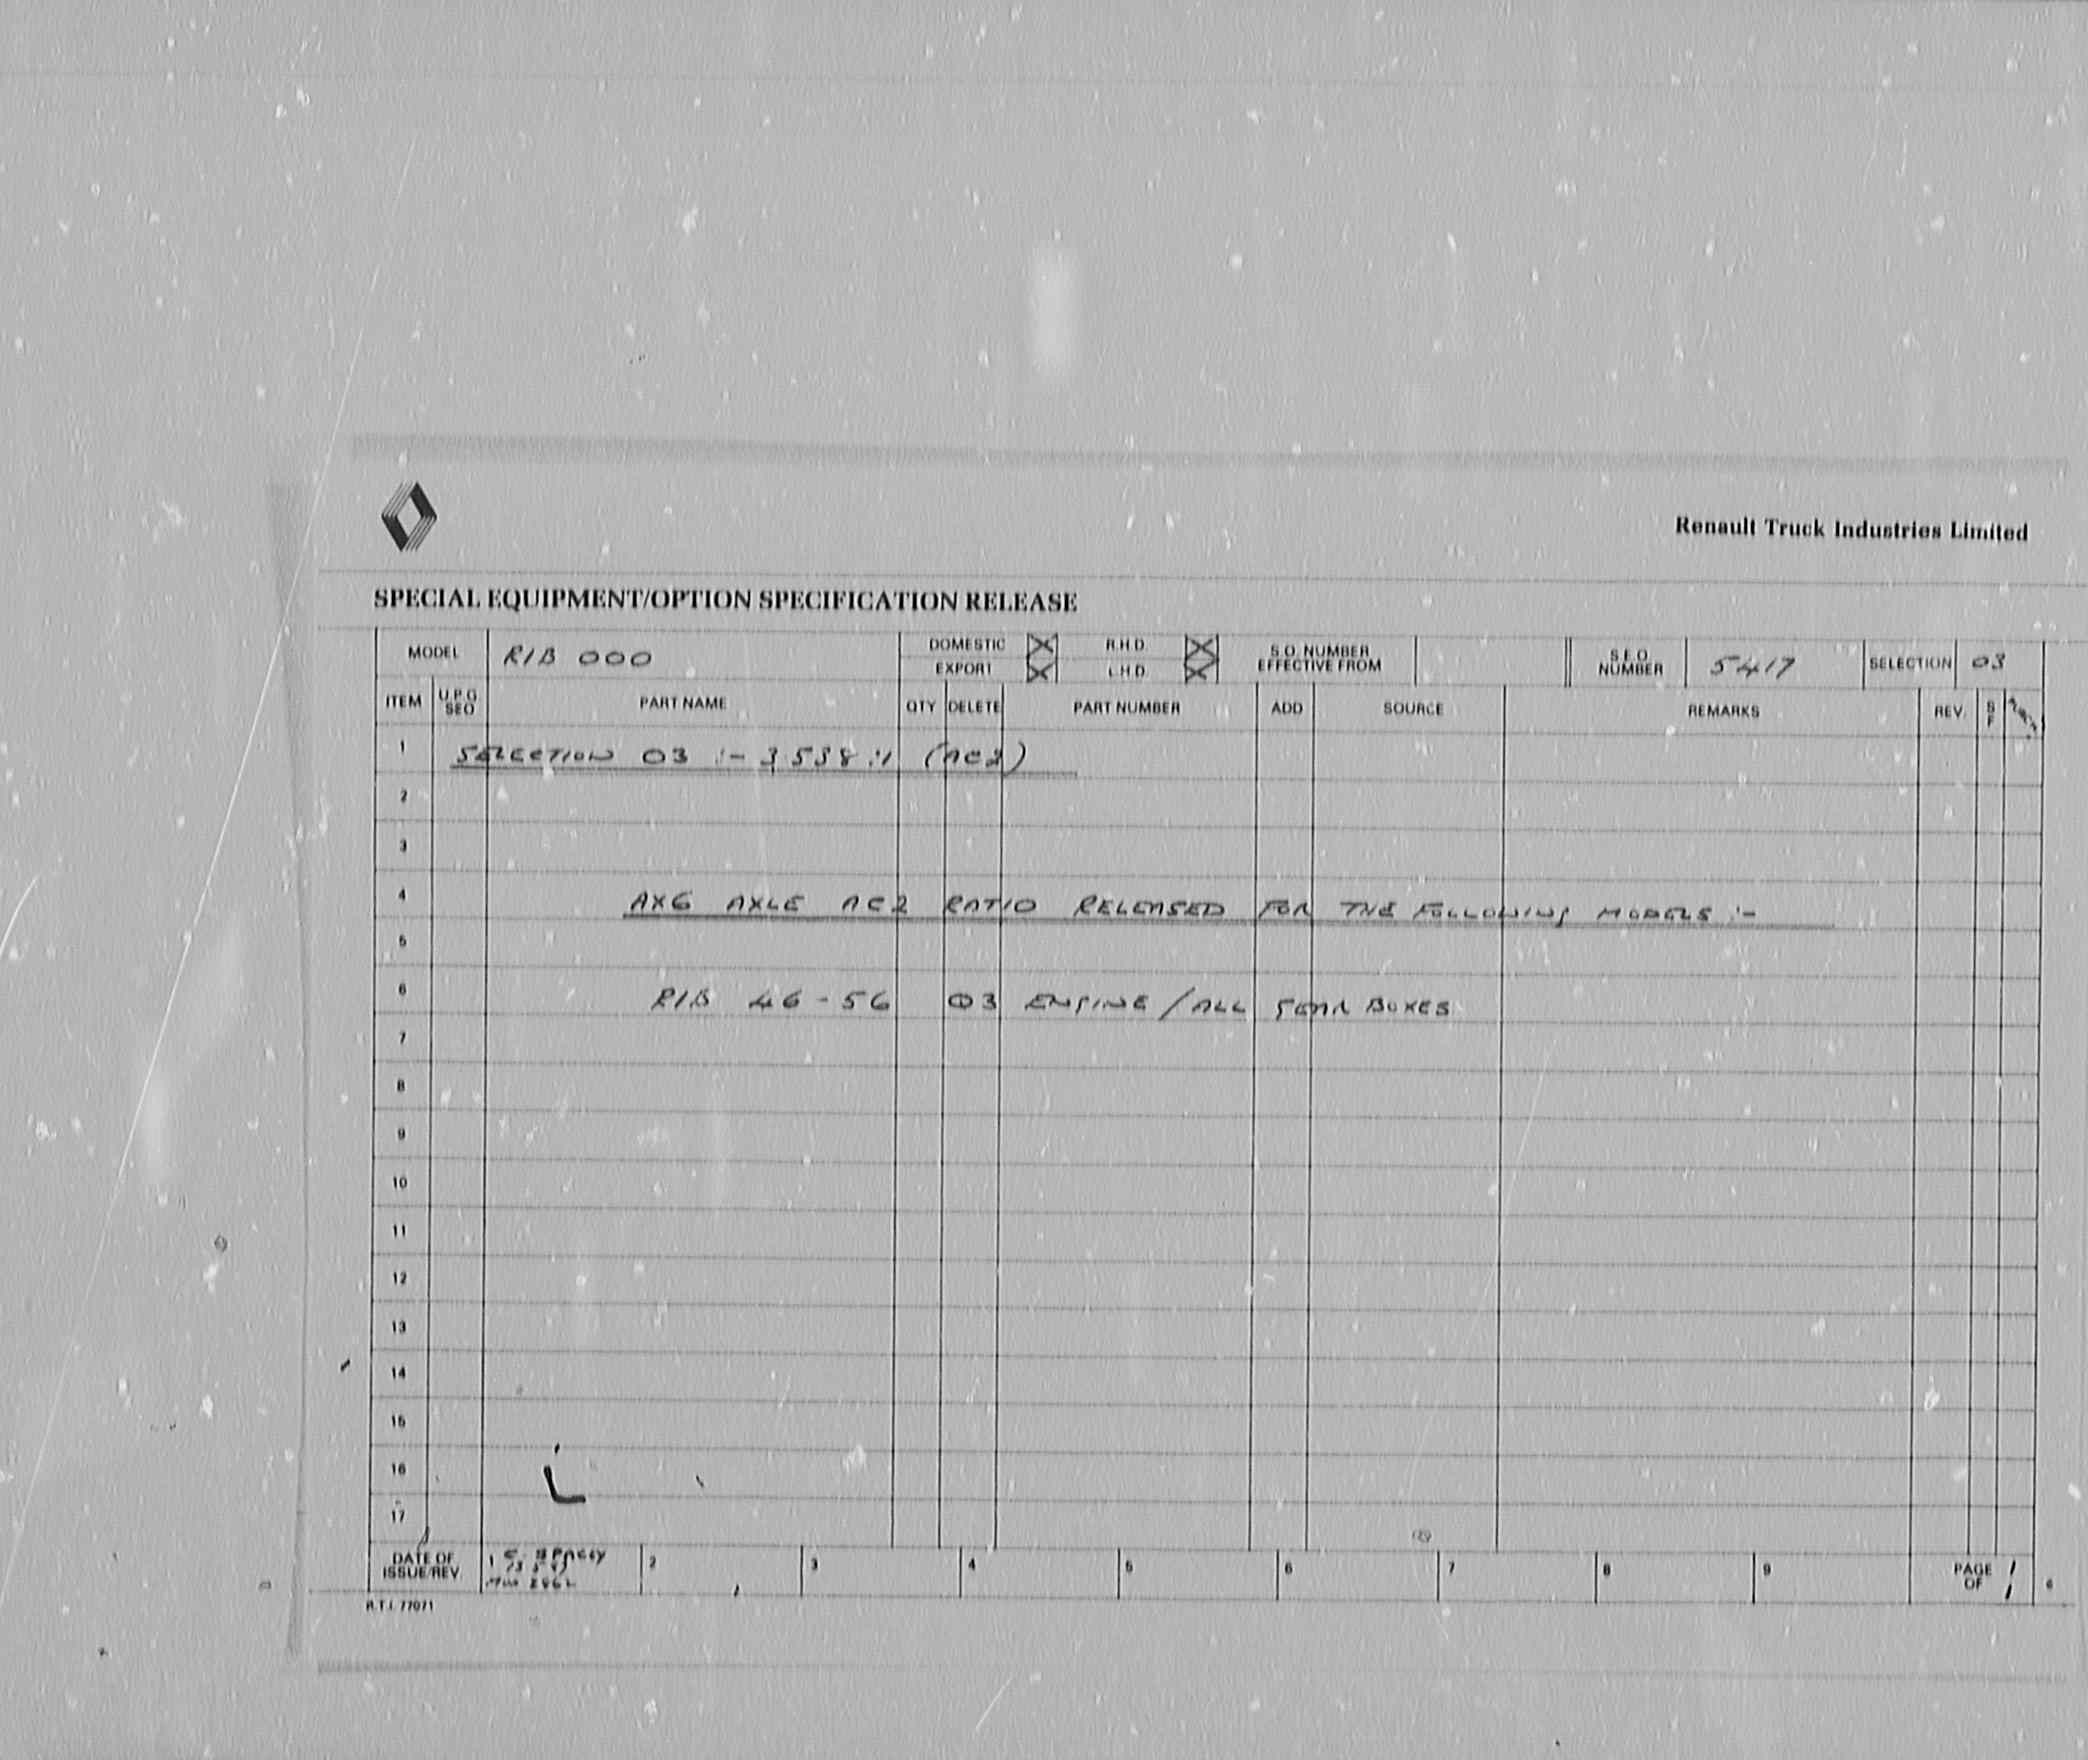 Renault Truck Industries Limited
SPECIAL EQUIPMENT/OPTION SPECIFICATION RELEASE
MODEL R1B 000 DOMESTIC R.H.D. S.O. NUMBER EFFECTIVE FROM S.E.O. NUMBER 5417 SELECTION 03
EXPORT L.H.D.
ITEM U.P.G. SEQ PART NAME QTY DELETE PART NUMBER ADD SOURCE REMARKS REV. S F
1 SELECTION 03 :- 3.538:1 (AC2)
2
3
4 AXG AXLE AC2 RATIO RELEASED FOR THE FOLLOWING MODELS :-
5
6 R1B 46-56 03 ENGINE/ALL GEAR BOXES
7
8
9
10
11
12
13
14
15
16
17
DATE OF ISSUE/REV. 1 2 3 4 5 6 7 8 9 PAGE 1 OF 1
R.T.I. 77071